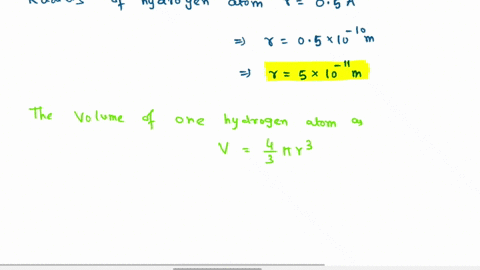 of hydrogen atom r = 0.5 A
⇒ r = 0.5 × 10⁻¹⁰ m
⇒ r = 5 × 10⁻¹¹ m
The Volume of one hydrogen atom as
V = 4/3 π r³